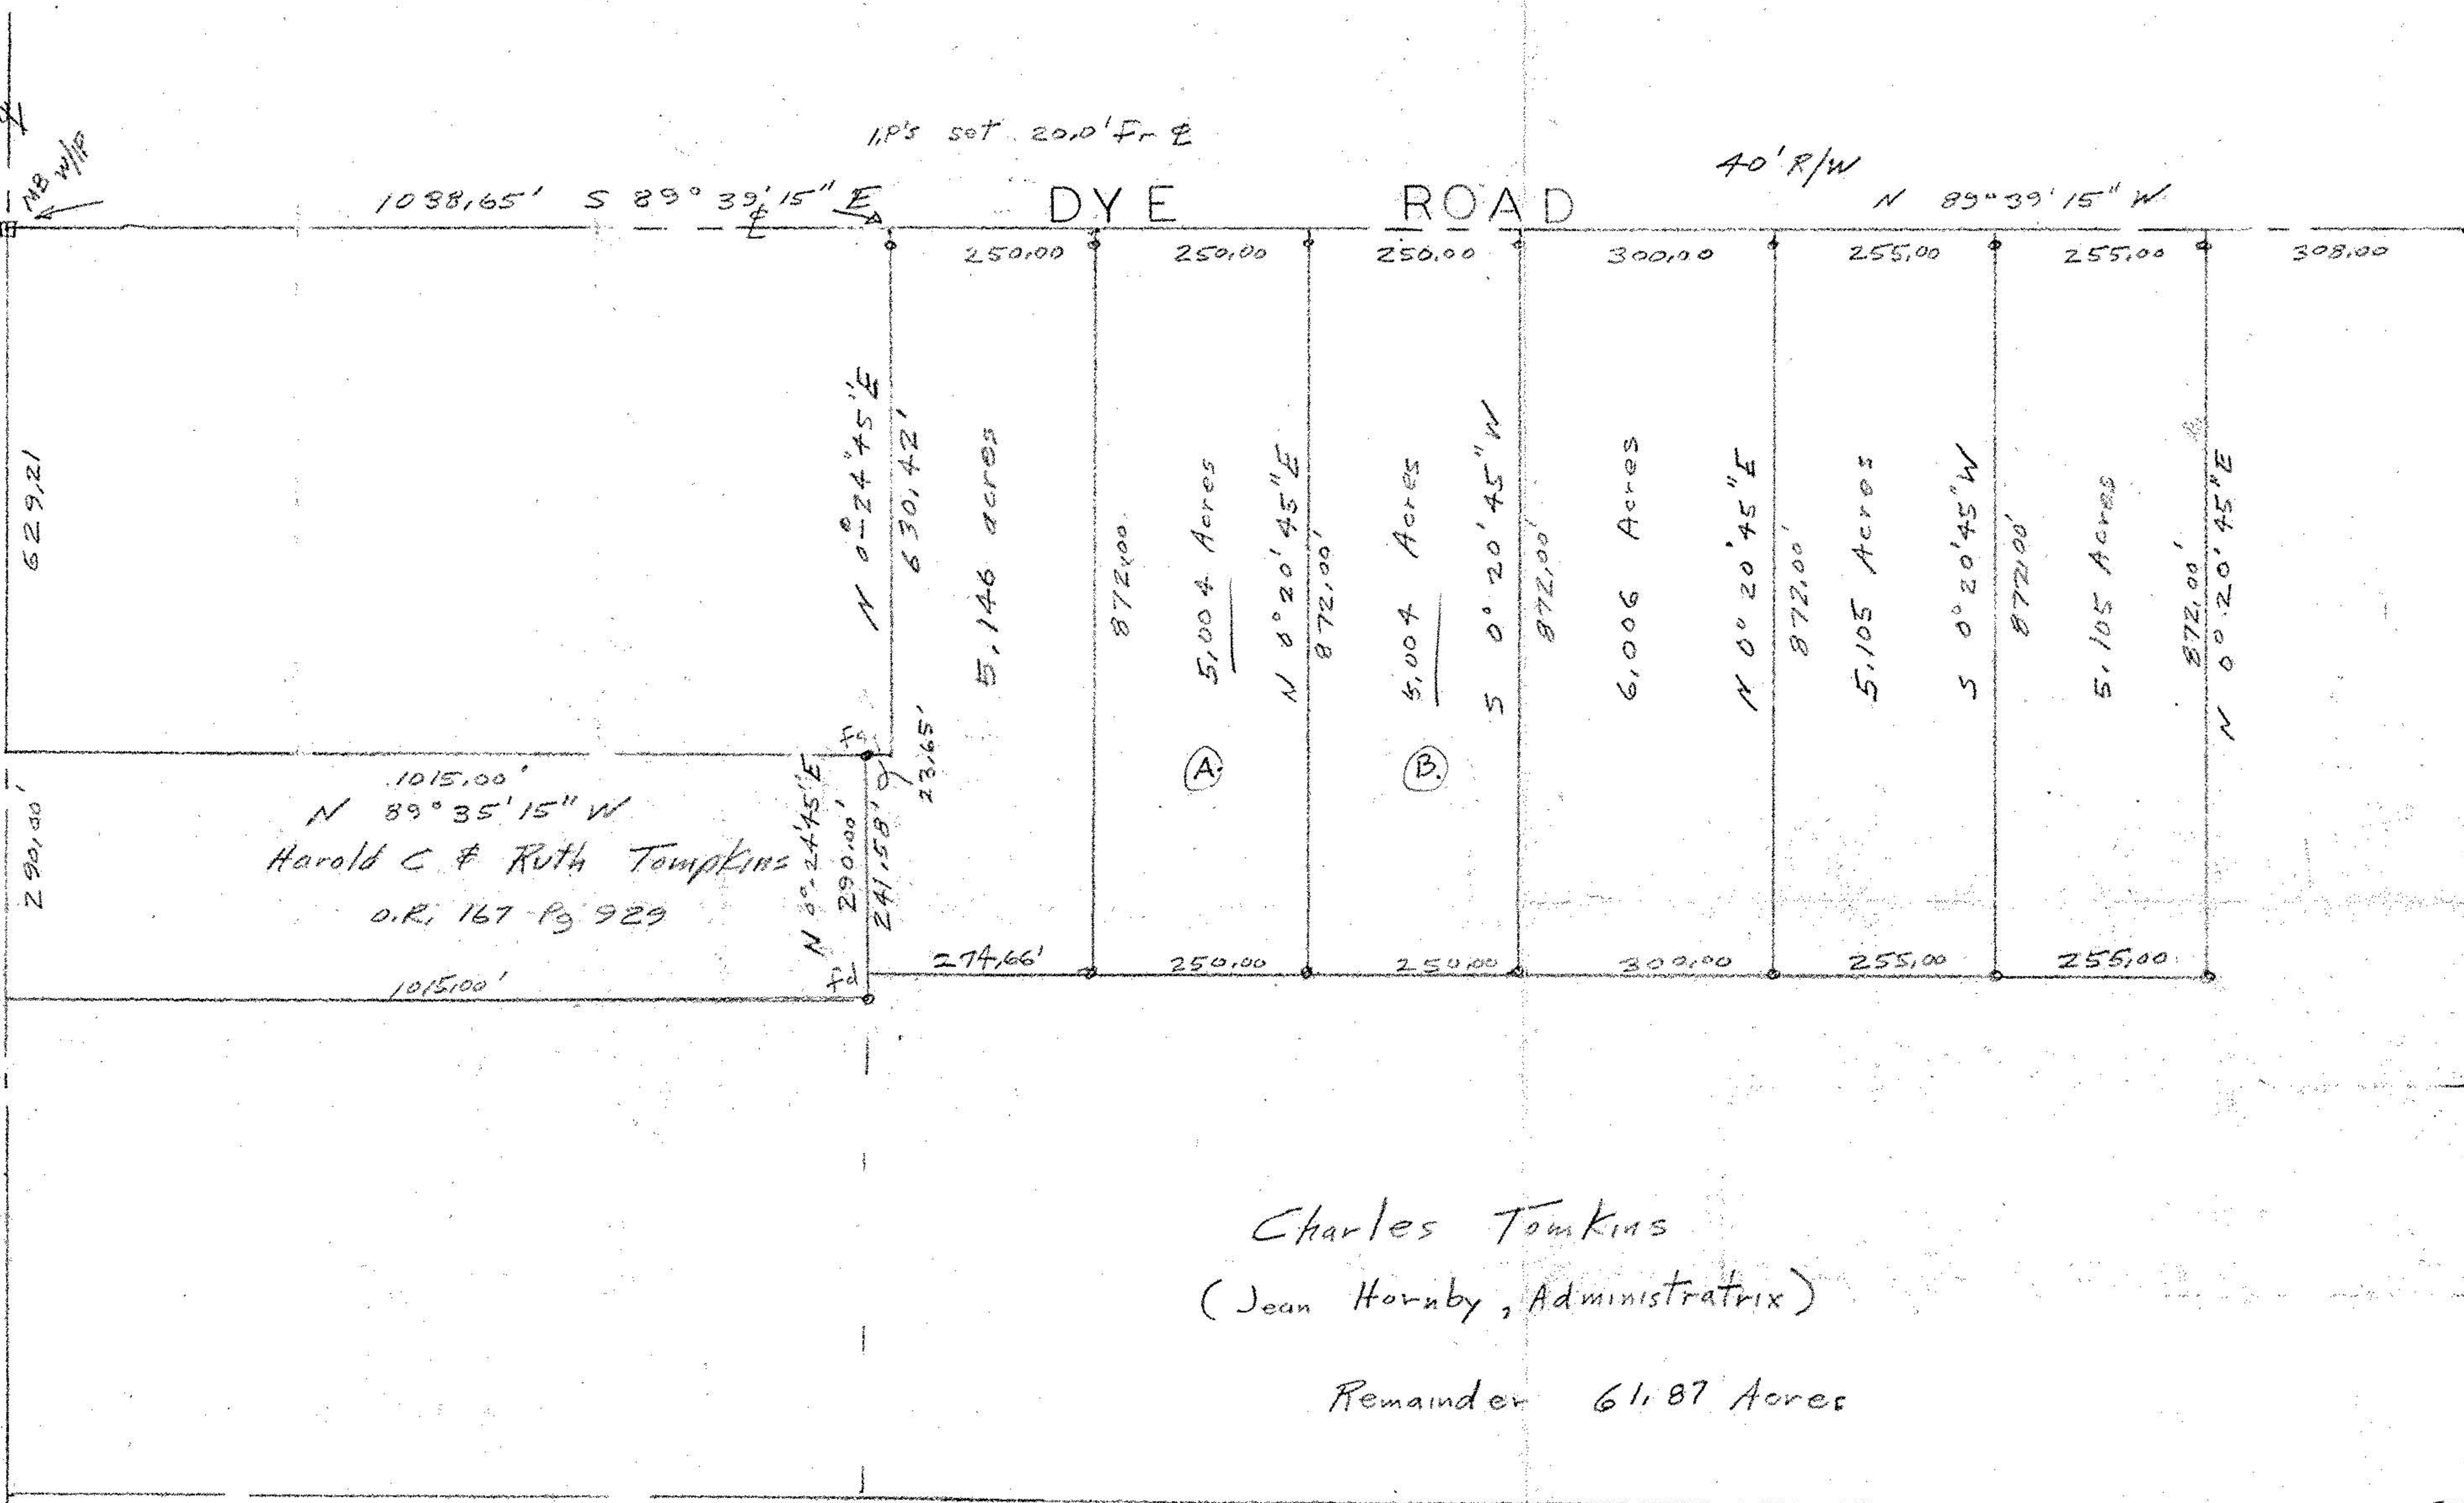 I.P's set 20.0' Fr ℄
40' R/W
MB W/IP
1038.65' S 89° 39' 15" E
DYE ROAD
N 89° 39' 15" W
℄
250.00 250.00 250.00 300.00 255.00 255.00 308.00
629.21
N 0°-24'45"E
630.42'
5.146 acres
872.00
5.004 Acres
N 0° 20' 45" E
872.00'
5.004 Acres
S 0° 20' 45" W
872.00'
6.006 Acres
N 0° 20' 45" E
872.00'
5.105 Acres
S 0° 20' 45" W
872.00'
5.105 Acres
872.00'
N 0° 20' 45" E
fd
23.65'
A.
B.
1015.00'
N 89° 35' 15" W
Harold C & Ruth Tompkins
O.R. 167 Pg 929
290.00'
N 0°-24'45"E
290.00'
241.58'
274.66' 250.00 250.00 300.00 255.00 255.00
1015.00'
fd
Charles Tomkins
(Jean Hornby, Administratrix)
Remainder 61.87 Acres